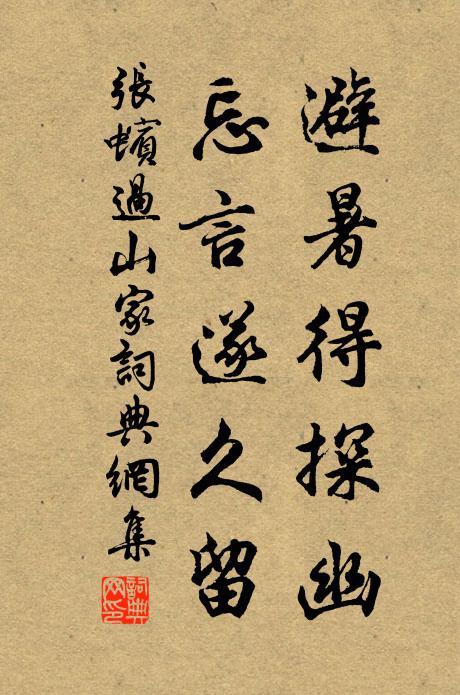 避暑得探幽
忘言遂久留
張蠙過山家詞典網集
詞典網印